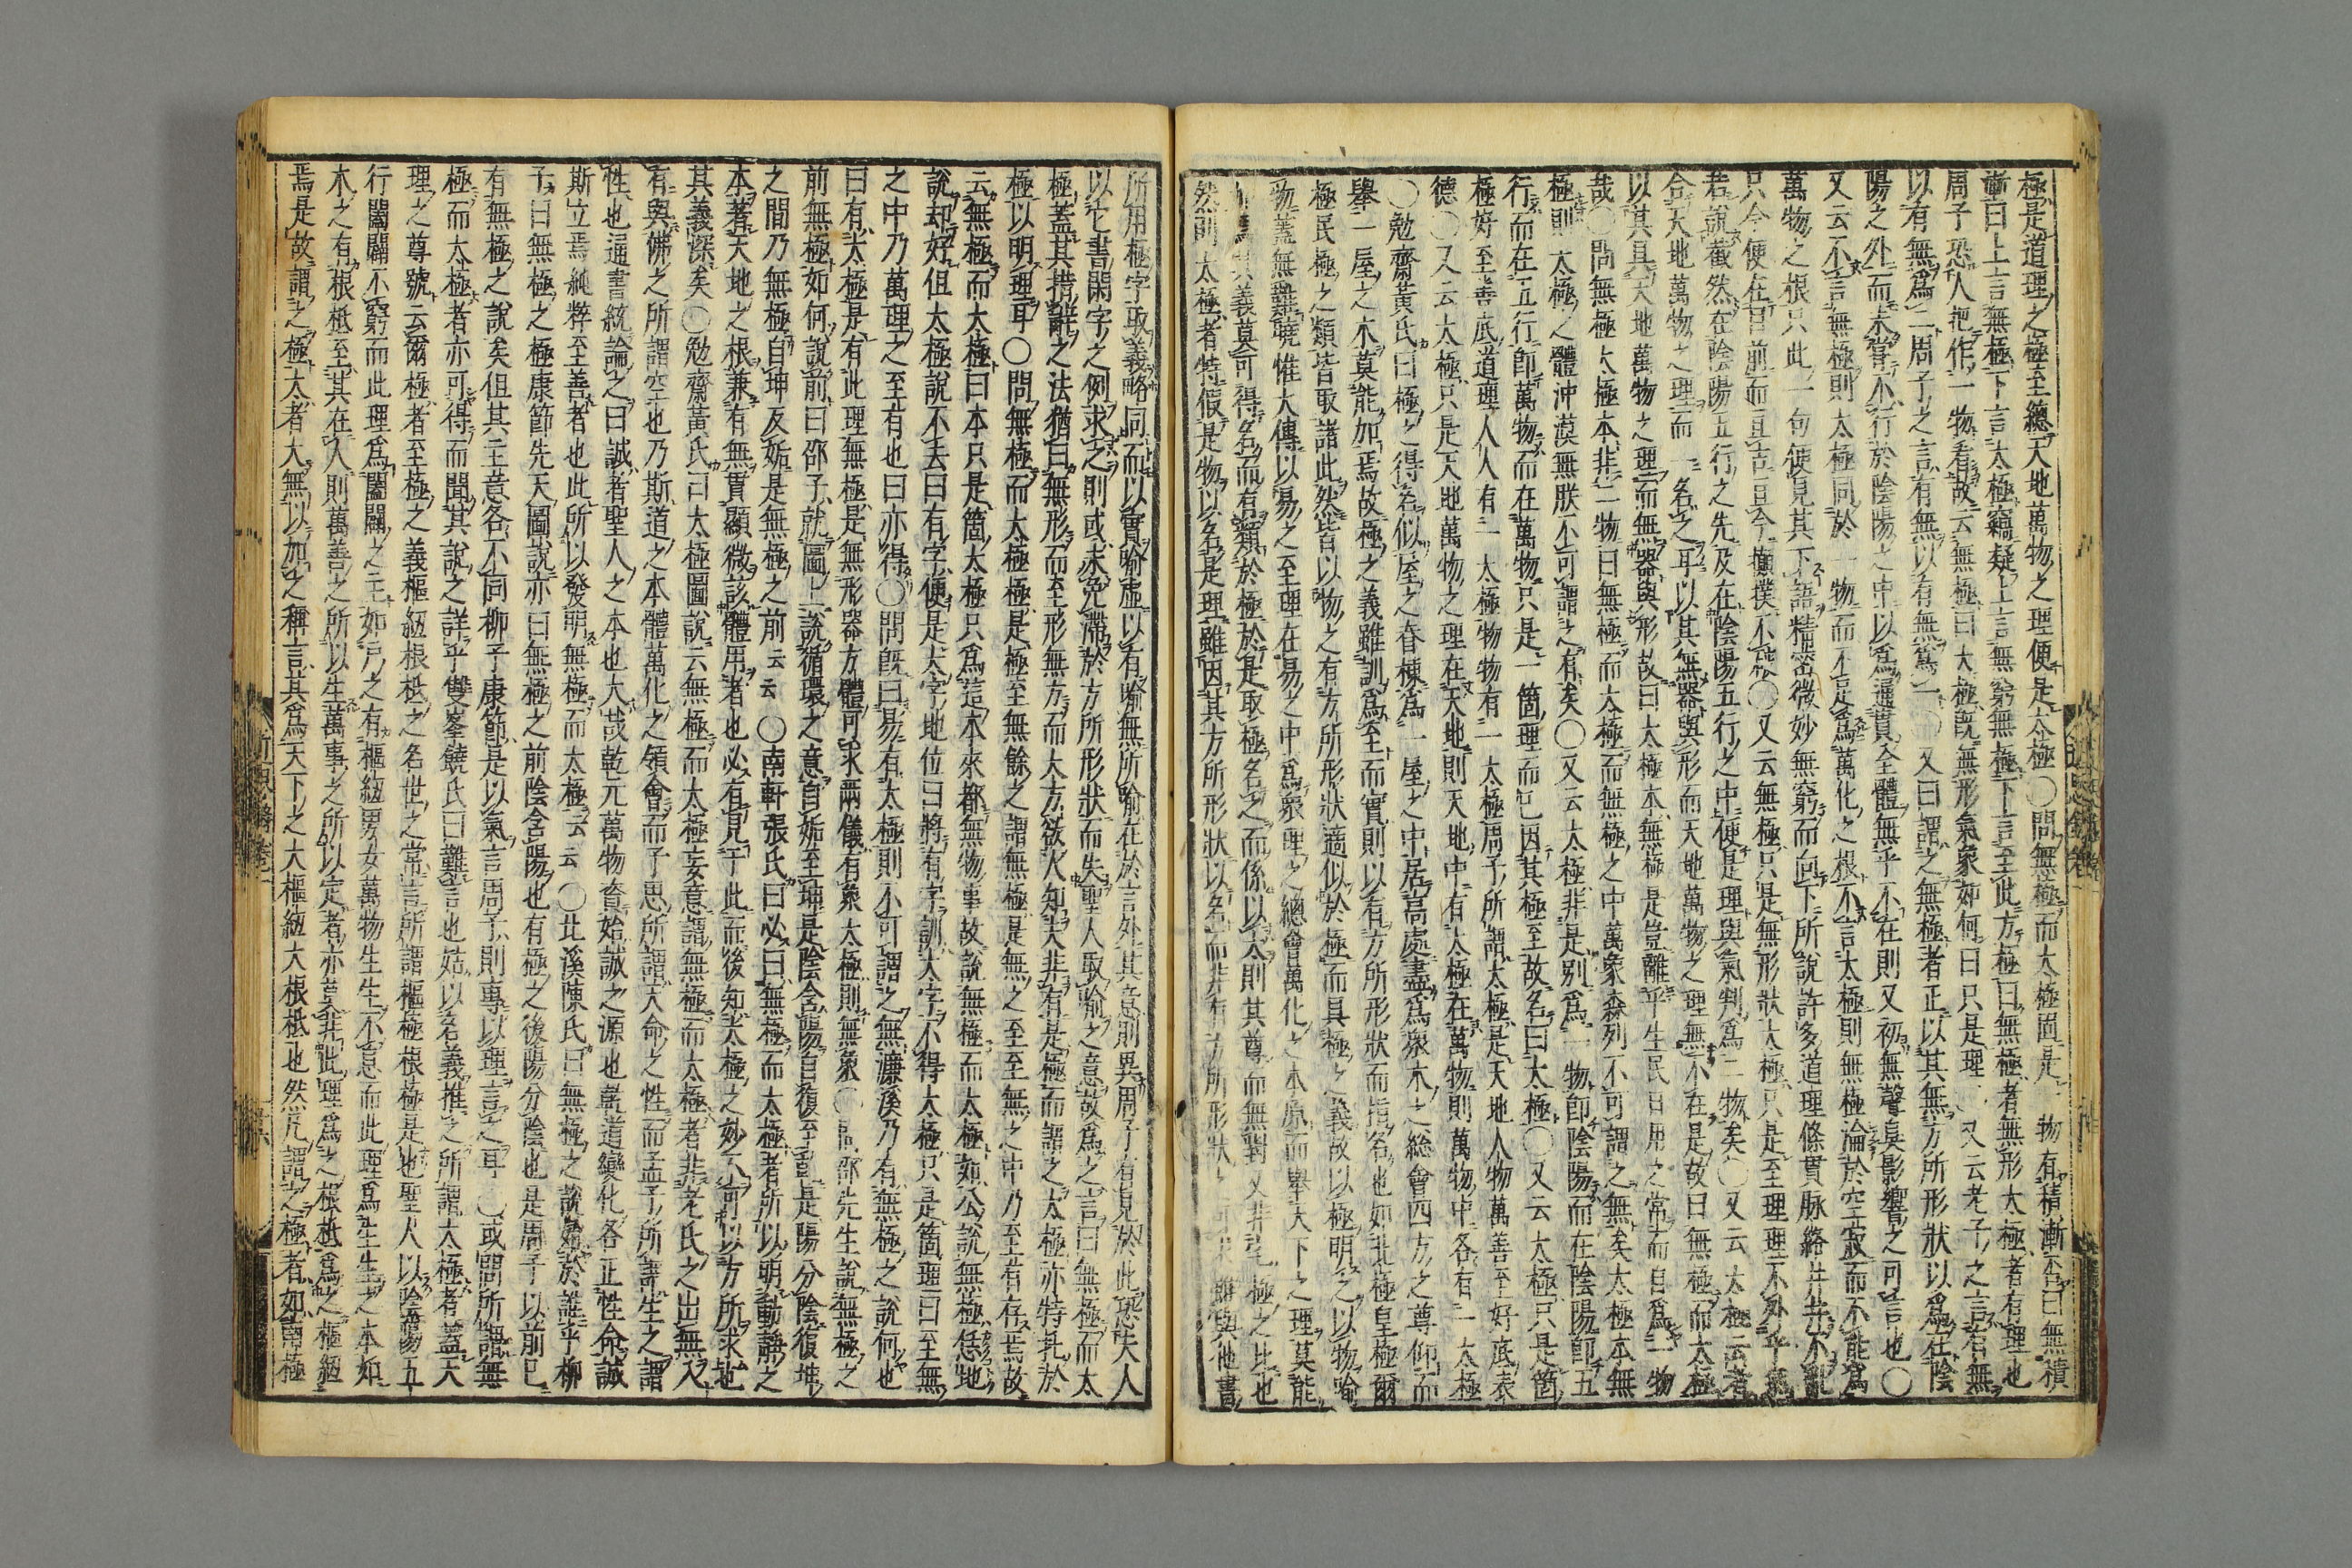 極是道理之極至總天地萬物之理便是太極〇問無極而太極固是一物有積漸否曰無積
漸曰上言無極下言太極竊疑上言無窮無極下言至此方極曰無極者無形太極者有理也
周子恐人把作一物看故云無極曰太極既無形氣象如何曰只是理又云老子之言有無
以有無爲二周子之言有無以有無爲一〇又曰謂之無極者正以其無方所形狀以爲在陰
陽之外而未嘗不行於陰陽之中以爲通貫全體無乎不在則又初無聲臭影響之可言也〇
又云不言無極則太極同於一物而不足爲萬化之根不言太極則無極淪於空寂而不能爲
萬物之根只此一句便見其下語精密微妙無窮而向下所說許多道理條貫脉絡井井不亂
只今便在目前而亘古亘今攧撲不破〇又云無極只是無形狀太極只是至理理不外乎氣
若說截然在陰陽五行之先及在陰陽五行之中便是理與氣判爲二物矣〇又云太極云者
合天地萬物之理而一名之耳以其無器與形而天地萬物之理無不在是故曰無極而太極
以其具天地萬物之理而無器與形故曰太極本無極是豈離乎生民日用之常而自爲一物
哉〇問無極太極本非二物曰無極而太極而無極之中萬象森列不可謂之無矣太極本無
極則太極之體沖漠無朕不可謂之有矣〇又云太極非是別爲一物卽陰陽而在陰陽卽五
行而在五行卽萬物而在萬物只是一箇理而已因其極至故名曰太極〇又云太極只是箇
極好至善底道理人人有一太極物物有一太極周子所謂太極是天地人物萬善至好底表
德〇又云太極只是天地萬物之理在天地則天地中有太極在萬物則萬物中各有一太極
〇勉齋黃氏曰極之得名似屋之脊棟爲一屋之中居高處盡爲衆木之総會四方之尊仰而
舉一屋之木莫能加焉故極之義雖訓爲至而實則以有方所形狀而指名也如北極皇極爾
極民極之類皆取諸此然皆以物之有方所形狀適似於極而具極之義故以極明之以物喻
物蓋無難曉惟大傳以易之至理在易之中爲衆理之總會萬化之本原而舉天下之理莫能
加焉其義莫可得名而有類於極於是取極名之而係以太則其尊而無對又非它極之比也
然則太極者特假是物以名是理雖因其方所形狀以名而非有方所形狀之可求雖與他書
所用極字取義略同而以實喻虛以有喻無所喻在於言外其意則異周子有見於此恐夫人
以它書閑字之例求之則或未免滯於方所形狀而失聖人取喻之意故爲之言曰無極而太
極蓋其措辭之法猶曰無形而至形無方而大方欲人知夫非有是極而謂之太極亦特托於
極以明理耳〇問無極而太極極是極至無餘之謂無極是無之至至無之中乃至有存焉故
云無極而太極曰本只是箇太極只爲這本來都無物事故說無極而太極如公說無極恁地
說却好但太極說不去曰有字便是太字地位曰將有字訓太字不得太極只是箇理曰至無
之中乃萬理之至有也曰亦得〇問既曰易有太極則不可謂之無濂溪乃有無極之說何也
曰有太極是有此理無極是無形器方體可求兩儀有象太極則無象〇問邵先生說無極之
前無極如何說前曰邵子就圖上說循環之意自姤至坤是陰含陽自復至乾是陽分陰復坤
之間乃無極自坤反姤是無極之前云云〇南軒張氏曰必曰無極而太極者所以明動靜之
本著天地之根兼有無貫顯微該體用者也必有見于此而後知太極之妙不可以方所求也
其義深矣〇勉齋黃氏曰太極圖說云無極而太極妄意謂無極而太極者非老氏之出無入
有與佛之所謂空也乃斯道之本體萬化之領會而子思所謂天命之性而孟子所謂生之謂
性也通書統論之曰誠者聖人之本也大哉乾元萬物資始誠之源也乾道變化各正性命誠
斯立焉純粹至善者也此所以發明無極而太極云云〇北溪陳氏曰無極之說始於誰乎柳
子曰無極之極康節先天圖說亦曰無極之前陰含陽也有極之後陽分陰也是周子以前已
有無極之說矣但其主意各不同柳子康節是以氣言周子則專以理言之耳〇或問所謂無
極而太極者亦可得而聞其說之詳乎雙峯饒氏曰難言也姑以名義推之所謂太極者蓋天
理之尊號云爾極者至極之義樞紐根柢之名世之常言所謂樞極根極是也聖人以陰陽五
行闔闢不窮而此理爲闔闢之主如戸之有樞紐男女萬物生生不息而此理爲生生之本如
木之有根柢至其在人則萬善之所以生萬事之所以定者亦莫非此理爲之根柢爲之樞紐
焉是故謂之極太者大無以加之稱言其爲天下之大樞紐大根柢也然凡謂之極者如南極